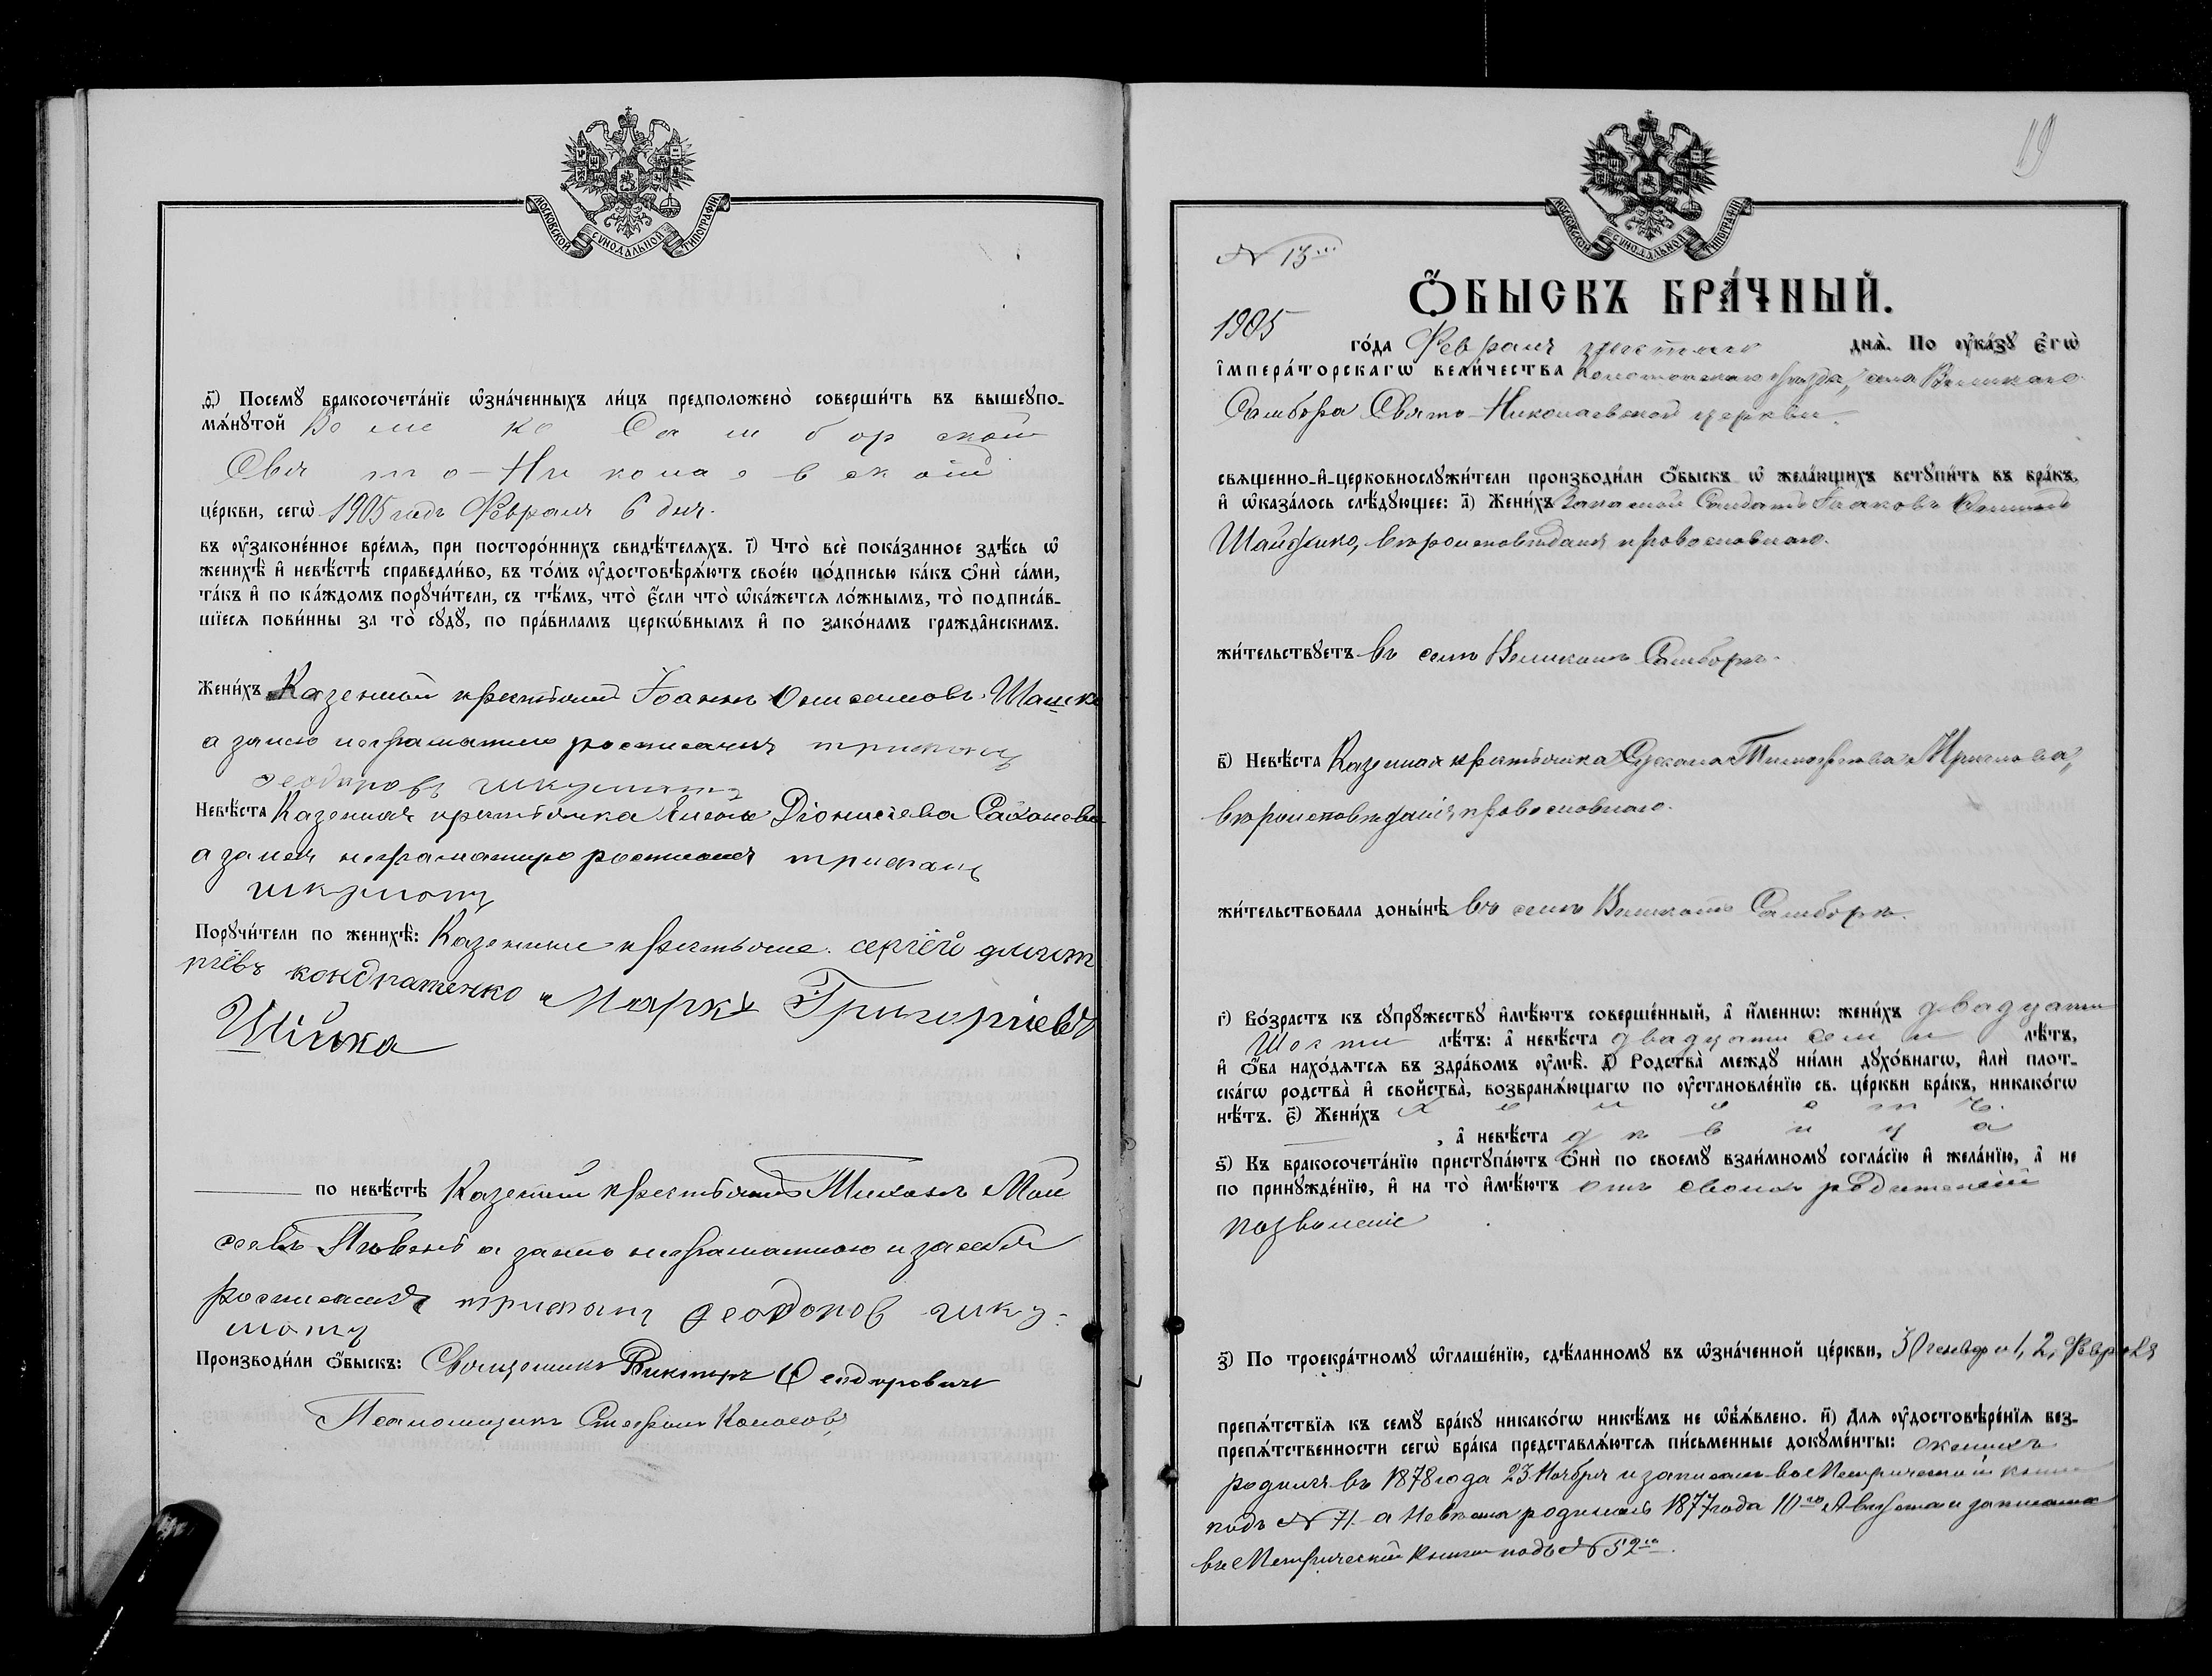 МОСКОВСКОЙ СУНОДАЛЬНОЙ ТИПОГРАФІИ
д҃і) Посемꙋ бракосочета́нїе ѡ҆зна́ченныхъ ли́цъ предположено̀ соверши́ть въ вышеꙋпо-
мѧ́нꙋтой Велико Самборской
Свято-Николаевской
це́ркви, сегѡ̀ 1905 года Февраля 6 дня.
въ ᲂу҆законе́нное вре́мѧ, при посторо́ннихъ свидѣ́телѧхъ. і҃) Что̀ всѐ пока́занное здѣ́сь ѡ҆
женихѣ̀ и҆ невѣ́стѣ справедли́во, въ то́мъ ᲂу҆достовѣрѧ́ютъ свое́ю по́дписью ка́къ ѻ҆нѝ са́ми,
та́къ и҆ по ка́ждомъ порꙋчи́тели, съ тѣ́мъ, что̀ є҆́сли что̀ ѡ҆ка́жетсѧ ло́жнымъ, то̀ подписа́в-
шїесѧ пови́нны за то̀ сꙋдꙋ̀, по пра́виламъ церко́внымъ и҆ по зако́намъ гражда̑нскимъ.
Жени́хъ Казенный крестьянинъ Іоаннъ Онисимовъ Шашко
а за него неграмотнаго росписался трифонъ
феодоровъ шкуматъ
Невѣ́ста Казенная крестьянка Діонисіева
а за нея неграмотную росписался трифонъ
шкуматъ
Порꙋчи́тели по женихѣ̀: Казенные крестьяне. сергѣй дмит
ріевъ кондратенко и Марко Григоріевъ
Шійка
по невѣ́стѣ Казенный крестьянинъ Тихонъ Мои
сеевъ а за него неграмотнаго и за себя
росписался трифонъ феодоров шку-
матъ
Производи́ли ѻ҆́быскъ: Священникъ Викторъ Ѳеодоровичъ
Псаломщикъ Стефанъ Колосовъ
19
МОСКОВСКОЙ СУНОДАЛЬНОЙ ТИПОГРАФІИ
№ 13
Ѻ҆́БЫСКЪ БРА́ЧНЫЙ.
1905
го́да Февраля шестаго днѧ̀. По ᲂу҆ка́зꙋ є҆гѡ̀
і҆мпера́торскагѡ вели́чества Конотопскаго уѣзда, села Великаго
Самбора Свято-Николаевской церкви.
свѧщенно-и҆-церковнослꙋжи́тели производи́ли ѻ҆́быскъ ѡ҆ жела́ющихъ встꙋпи́ть въ бра́къ,
и҆ ѡ҆каза́лось слѣ́дꙋющее: а҃) Жени́хъ Запасной Солдатъ Іаковъ
вѣроисповѣданія православнаго.
жи́тельствꙋетъ въ селѣ Великомъ Самборѣ.
в҃) Невѣ́ста Казенная крестьянка Тимофеева
вѣроисповѣданія православнаго.
жи́тельствовала доны́нѣ въ селѣ Великомъ Самборѣ.
г҃) Во́зрастъ къ сꙋпрꙋ́жествꙋ и҆мѣ́ютъ соверше́нный, а҆ и҆́меннѡ: жени́хъ двадцати
шости лѣ́тъ: а҆ невѣ́ста двадцати семи лѣ́тъ,
и҆ ѻ҆́ба нахо́дѧтсѧ въ здра́вомъ ᲂу҆мѣ̀. д҃) Родства̀ междꙋ̀ ни́ми дꙋхо́внагѡ, и҆лѝ плот-
ска́гѡ родства̀ и҆ свойства̀, возбранѧ́ющагѡ по ᲂу҆становле́нїю св. це́ркви бра́къ, никако́гѡ
нѣ́тъ. є҃) Жени́хъ холостъ.
, а҆ невѣ́ста дѣвица
ѕ҃) Къ бракосочета́нїю пристꙋпа́ютъ ѻ҆нѝ по своемꙋ̀ взаи́мномꙋ согла́сїю и҆ жела́нїю, а҆ не
по принꙋжде́нїю, и҆ на то̀ и҆мѣ́ютъ отъ своихъ родителей
позволеніе
з҃) По троекра́тномꙋ ѡ҆глаше́нїю, сдѣ́ланномꙋ въ ѡ҆зна́ченной це́ркви, 30 генваря и 1, 2, Февраля
препѧ́тствїѧ къ семꙋ̀ бра́кꙋ никако́гѡ никѣ́мъ не ѡ҆б̾ѧ́влено. и҃) Длѧ ᲂу҆достовѣре́нїѧ без-
препѧ́тственности сегѡ̀ бра́ка представлѧ́ютсѧ пи́сьменные докꙋме́нты: женихъ
родился въ 1878 года 23 Ноября и записанъ въ Метрической книгѣ
подъ № 71. а Невѣста родилась 1877 года 10го Августа и записана
въ Метрической книги подъ № 52